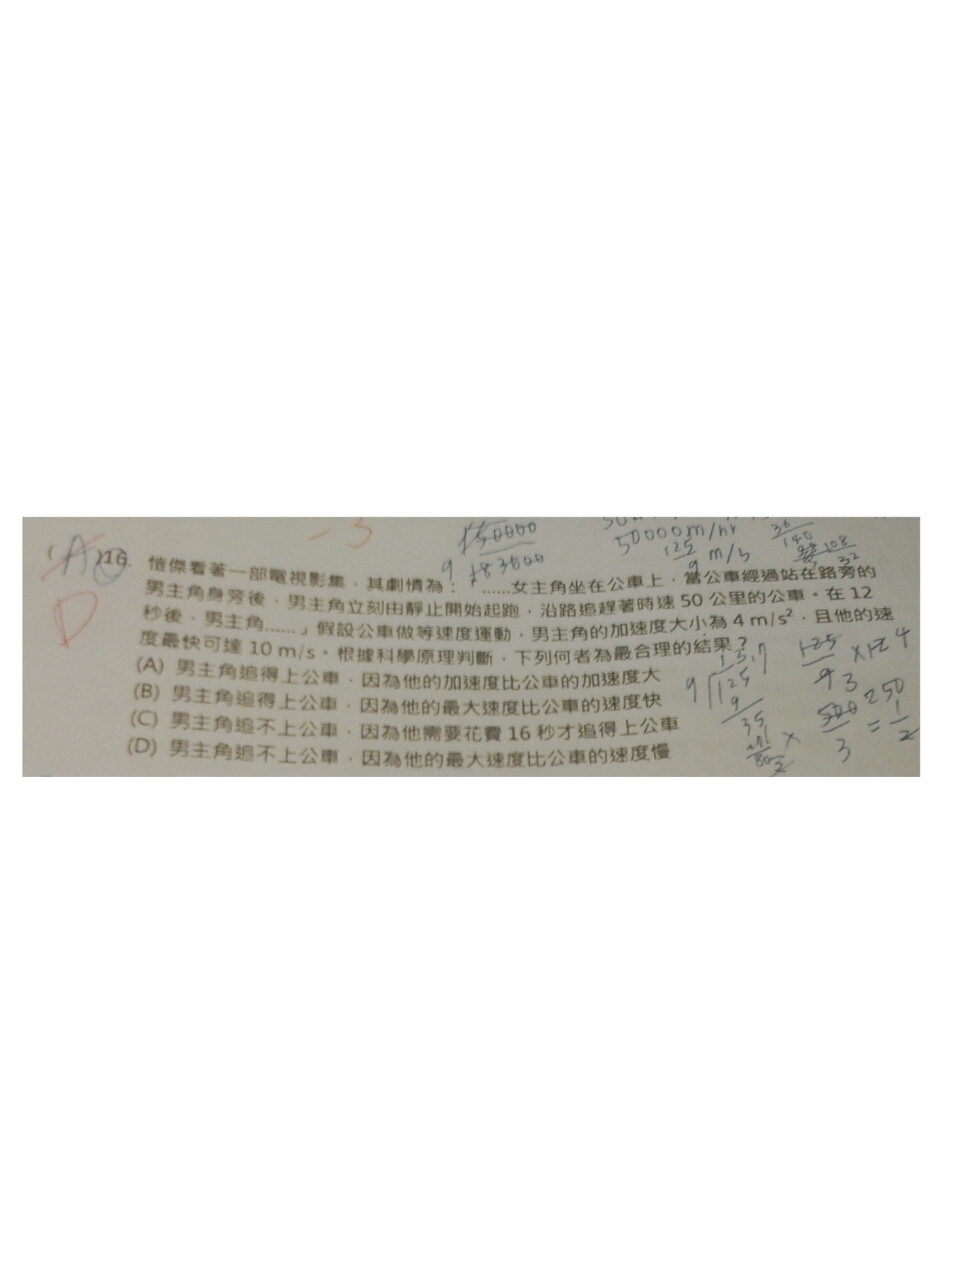 -3
50000m/hr
125
9
m/s
A
)16. 愷傑看著一部電視影集，其劇情為：「......女主角坐在公車上，當公車經過站在路旁的
男主角身旁後，男主角立刻由靜止開始起跑，沿路追趕著時速 50 公里的公車。在 12
秒後，男主角......」假設公車做等速度運動，男主角的加速度大小為 4 m/s²，且他的速
度最快可達 10 m/s。根據科學原理判斷，下列何者為最合理的結果？
D
(A) 男主角追得上公車，因為他的加速度比公車的加速度大
(B) 男主角追得上公車，因為他的最大速度比公車的速度快
(C) 男主角追不上公車，因為他需要花費 16 秒才追得上公車
(D) 男主角追不上公車，因為他的最大速度比公車的速度慢
9
125
9
35
125
9
×12 4
3